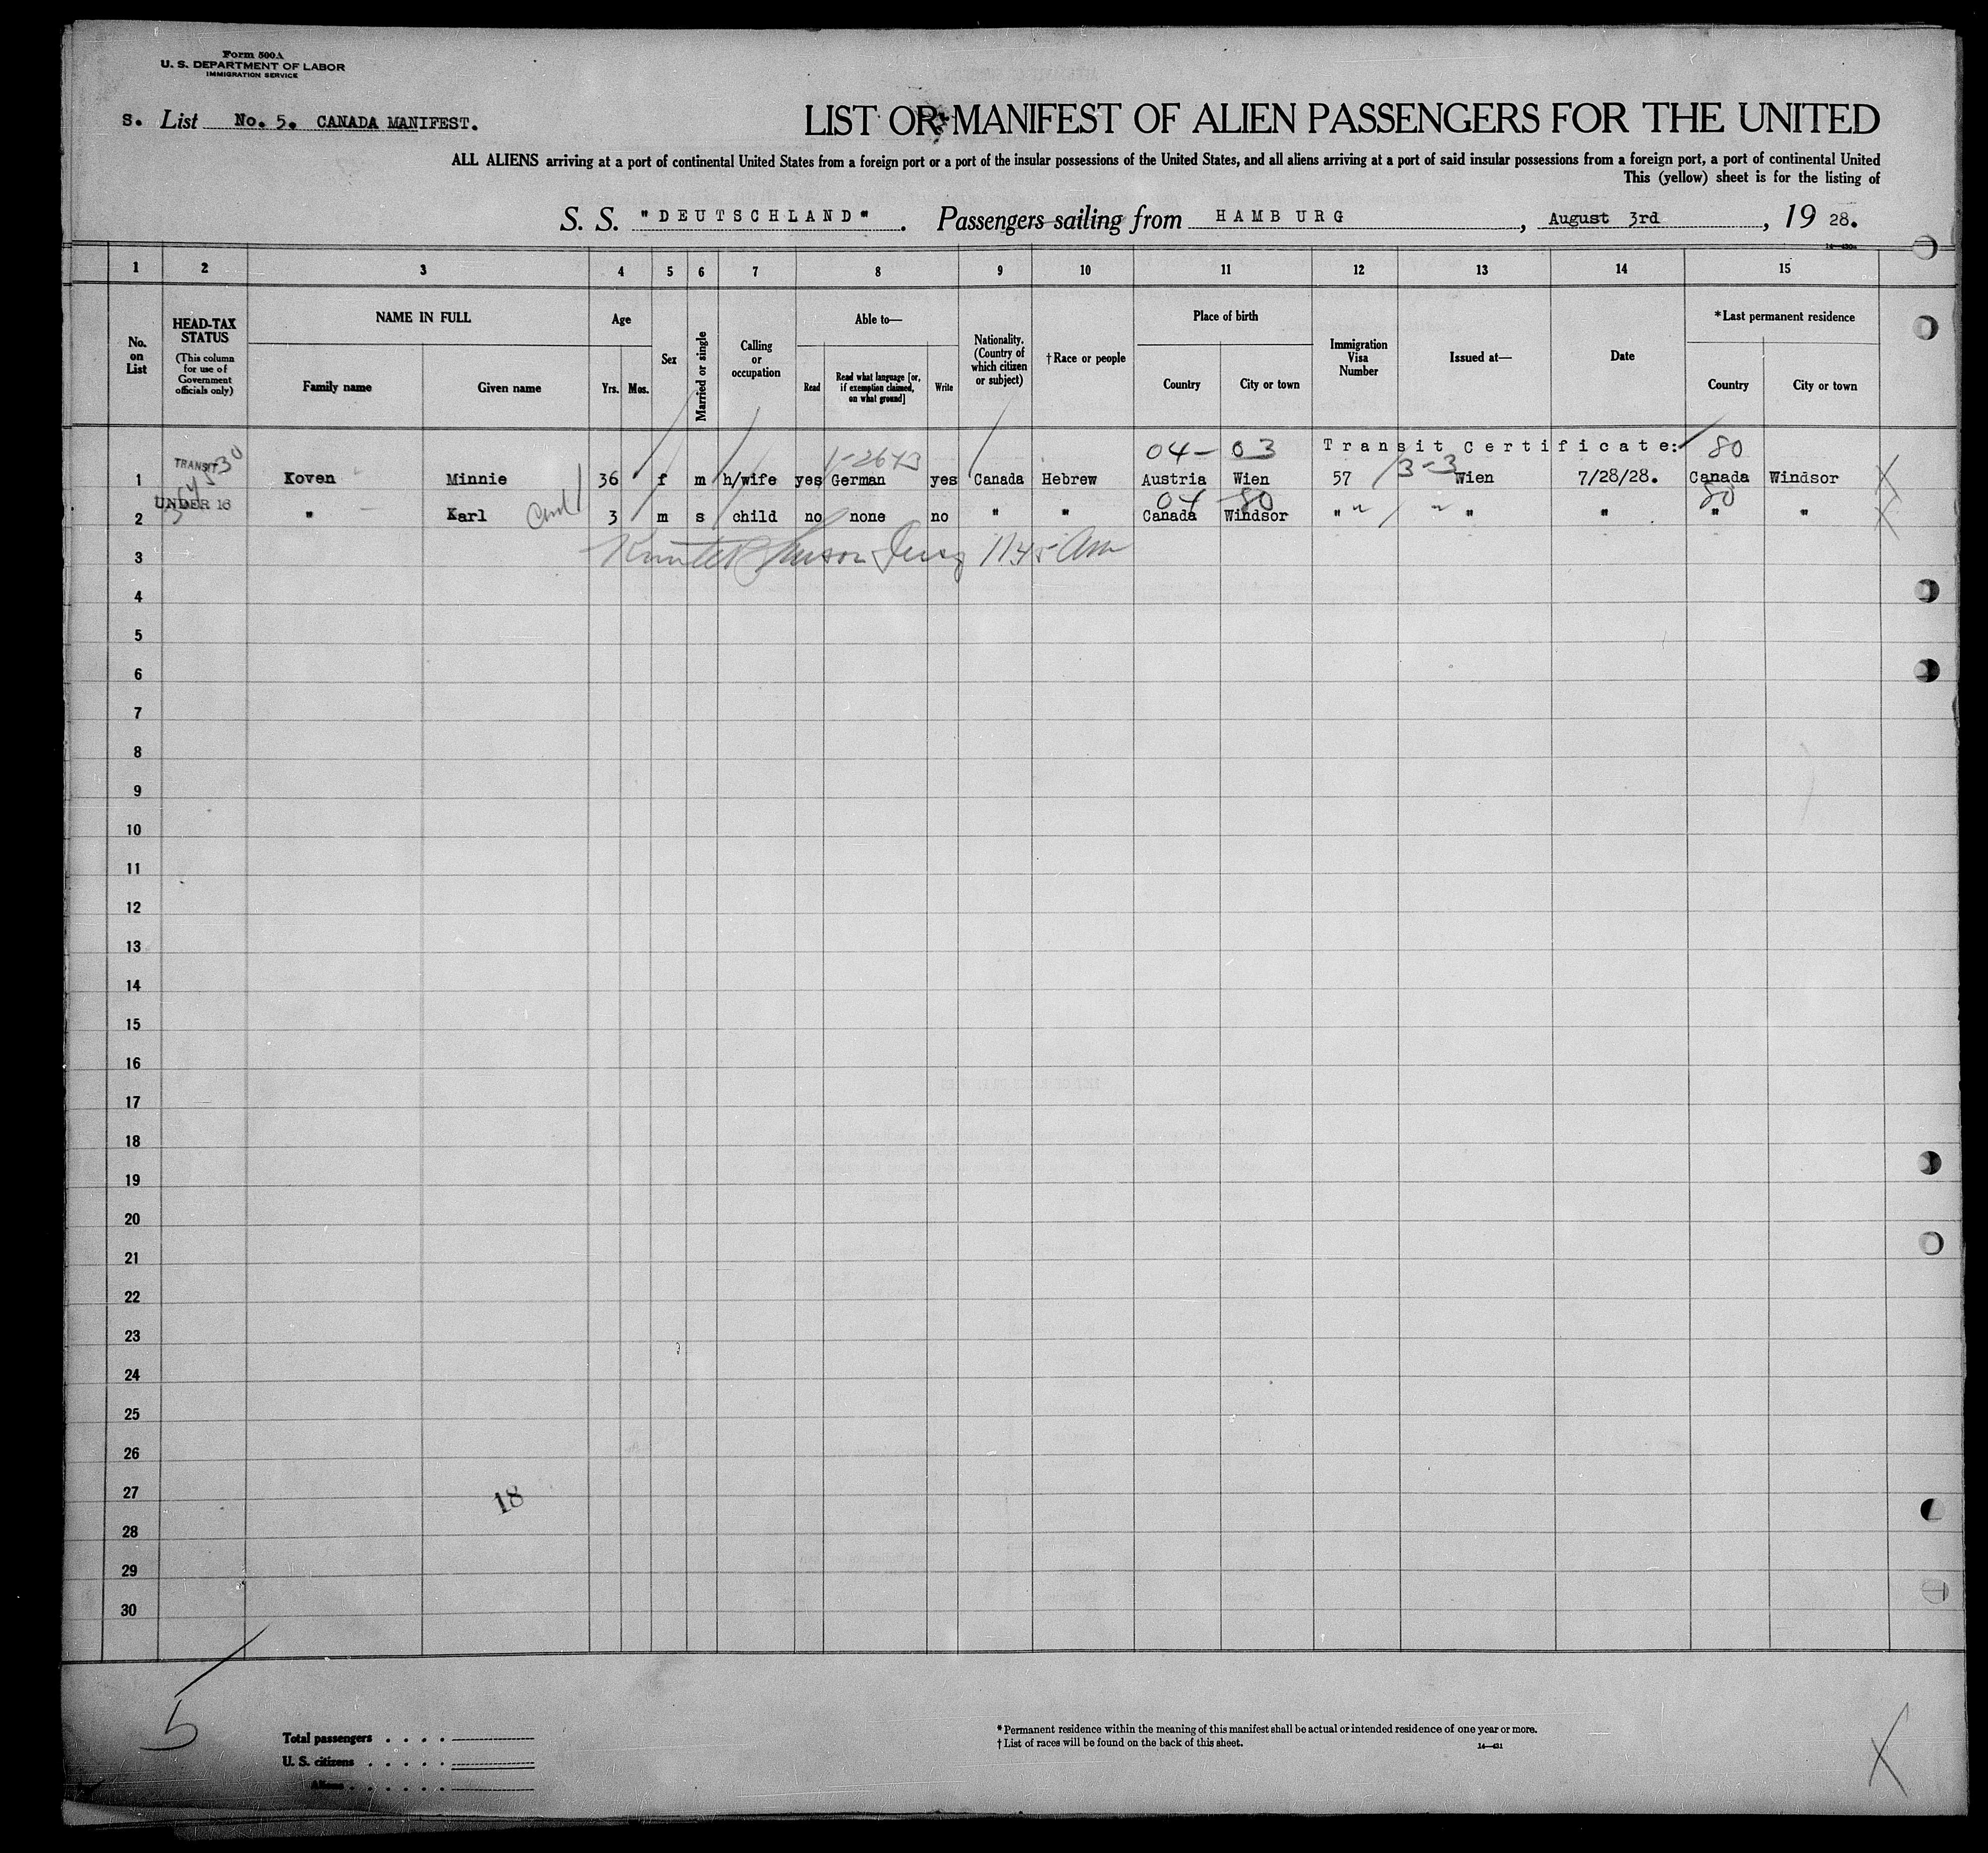 Form 500A
U. S. DEPARTMENT OF LABOR
IMMIGRATION SERVICE
S. List No. 5. CANADA MANIFEST.
LIST OR MANIFEST OF ALIEN PASSENGERS FOR THE UNITED
ALL ALIENS arriving at a port of continental United States from a foreign port or a port of the insular possessions of the United States, and all aliens arriving at a port of said insular possessions from a foreign port, a port of continental United
This (yellow) sheet is for the listing of
S. S. "DEUTSCHLAND". Passengers sailing from HAMBURG, August 3rd, 1928.
1 2 3 4 5 6 7 8 9 10 11 12 13 14 15
No. on List
HEAD-TAX STATUS (This column for use of Government officials only)
NAME IN FULL
Family name Given name
Age
Yrs. Mos.
Sex
Married or single
Calling or occupation
Able to—
Read Read what language [or, if exemption claimed, on what ground] Write
Nationality. (Country of which citizen or subject)
†Race or people
Place of birth
Country City or town
Immigration Visa Number
Issued at—
Date
*Last permanent residence
Country City or town
04- 03 Transit Certificate: 80
TRANSIT
1 Koven Minnie 36 f m h/wife yes German yes Canada Hebrew Austria Wien 57 3-3 Wien 7/28/28. Canada Windsor
UNDER 16 04 80 80
2 " Karl 3 m s child no none no " " Canada Windsor " " " " "
3 11 45 Am
4
5
6
7
8
9
10
11
12
13
14
15
16
17
18
19
20
21
22
23
24
25
26
27
18
28
29
30
5
Total passengers . . . .
U. S. citizens . . . . .
Aliens . . . . . .
*Permanent residence within the meaning of this manifest shall be actual or intended residence of one year or more.
†List of races will be found on the back of this sheet.
14—431